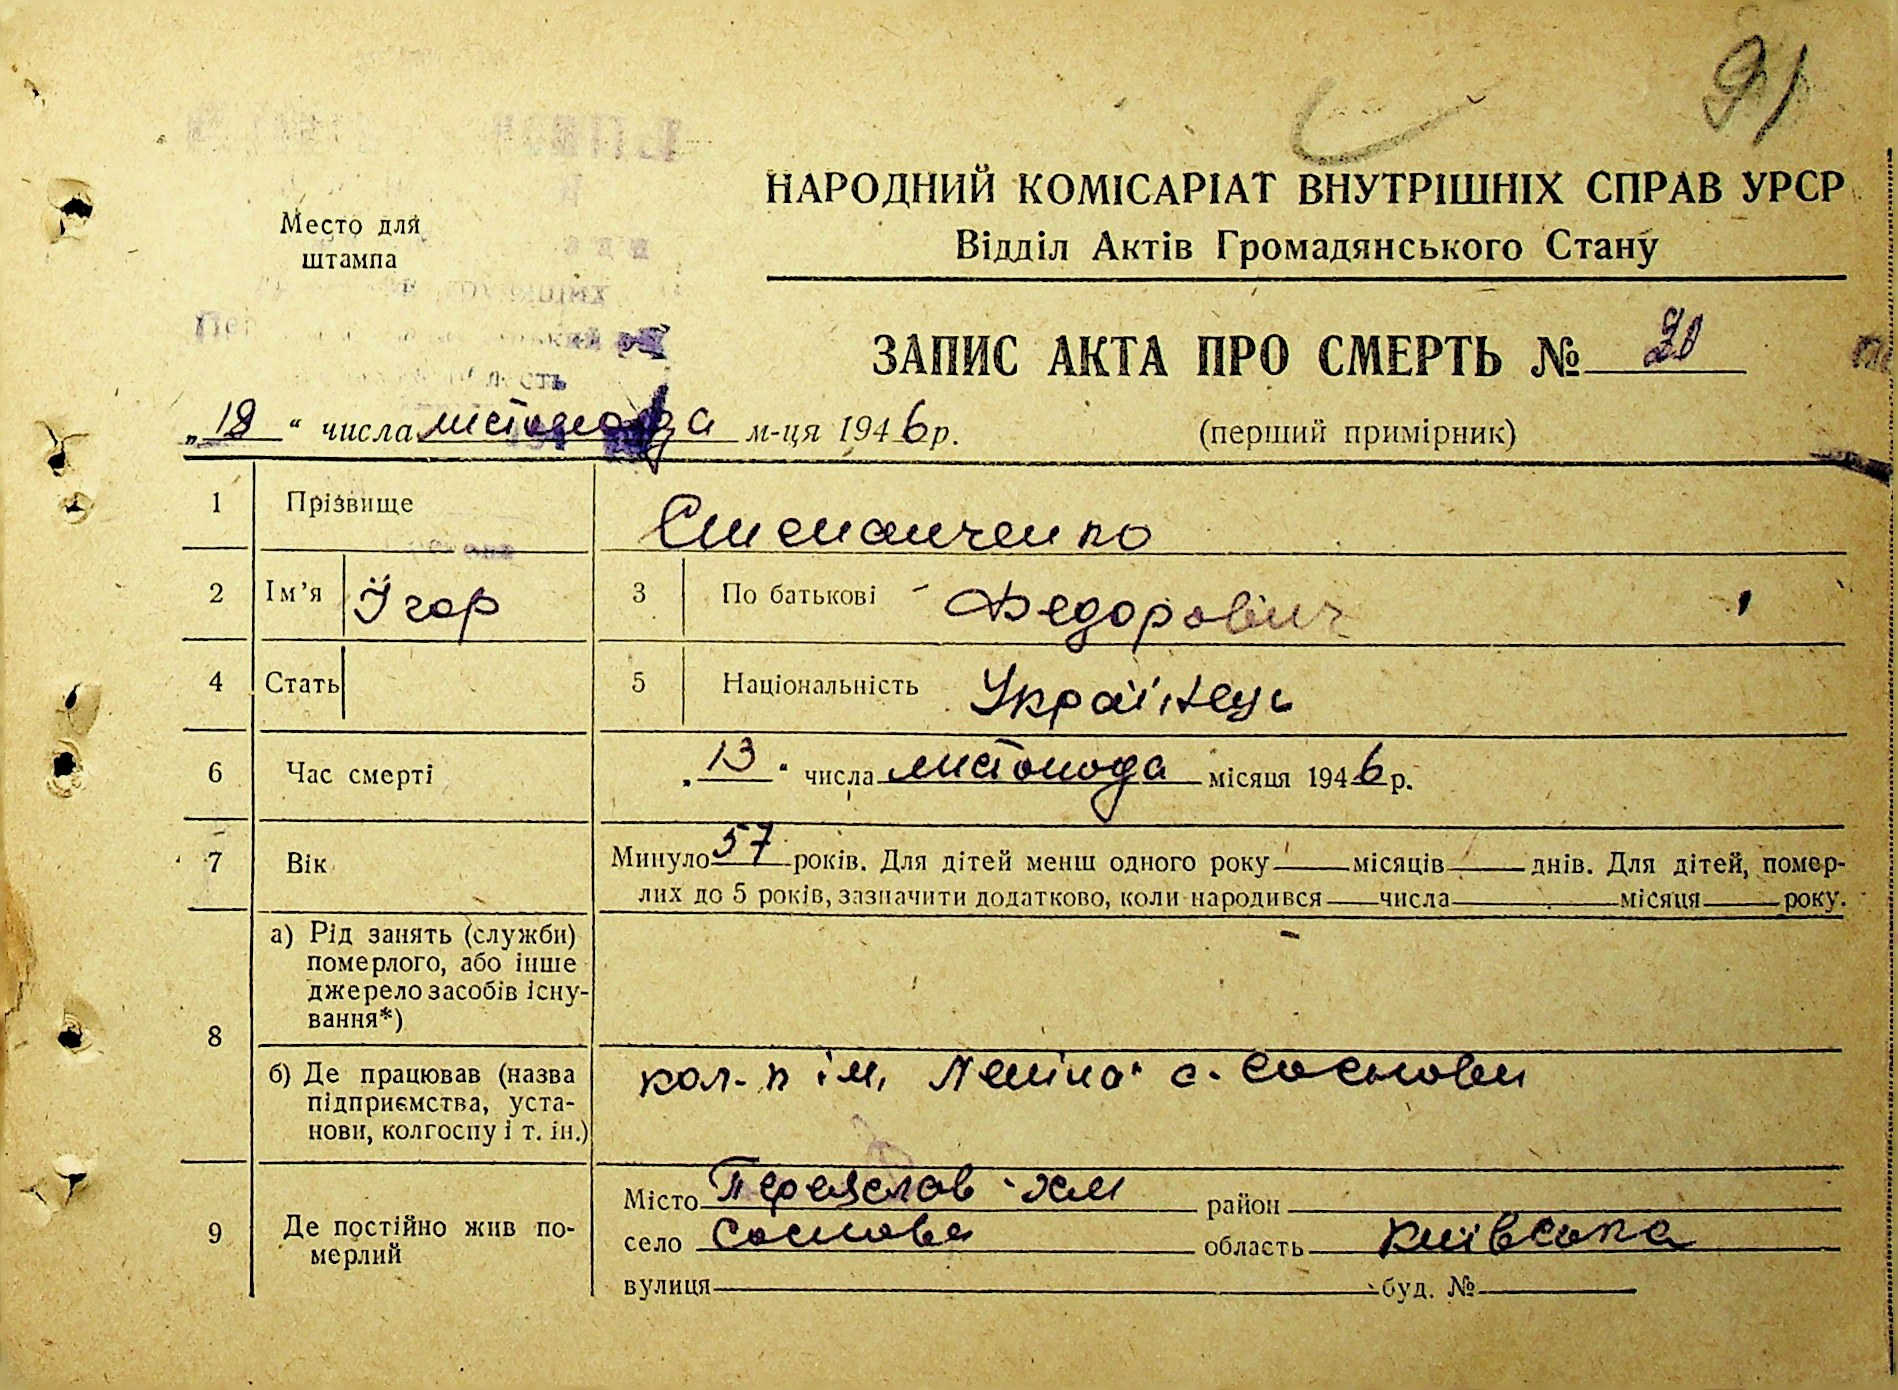 91
НАРОДНИЙ КОМІСАРІАТ ВНУТРІШНІХ СПРАВ УРСР
Відділ Актів Громадянського Стану
Место для
штампа
ЗАПИС АКТА ПРО СМЕРТЬ № 20
„18“ числа листопада м-ця 1946р.
(перший примірник)
1 Прізвище Степанченко
2 Ім'я Ігор 3 По батькові Федорович
4 Стать 5 Національність Українець
6 Час смерті „13“ числа листопада місяця 1946р.
7 Вік Минуло 57 років. Для дітей менш одного року місяців днів. Для дітей, помер-
лих до 5 років, зазначити додатково, коли народився числа місяця року.
8 а) Рід занять (служби)
померлого, або інше
джерело засобів існу-
вання*)
б) Де працював (назва
підприємства, уста-
нови, колгоспу і т. ін.)
кол-п ім. Леніна с. Соснови
9 Де постійно жив по-
мерлий
Місто Переяслав-Хм район
село Соснова область Київська
вулиця буд. №